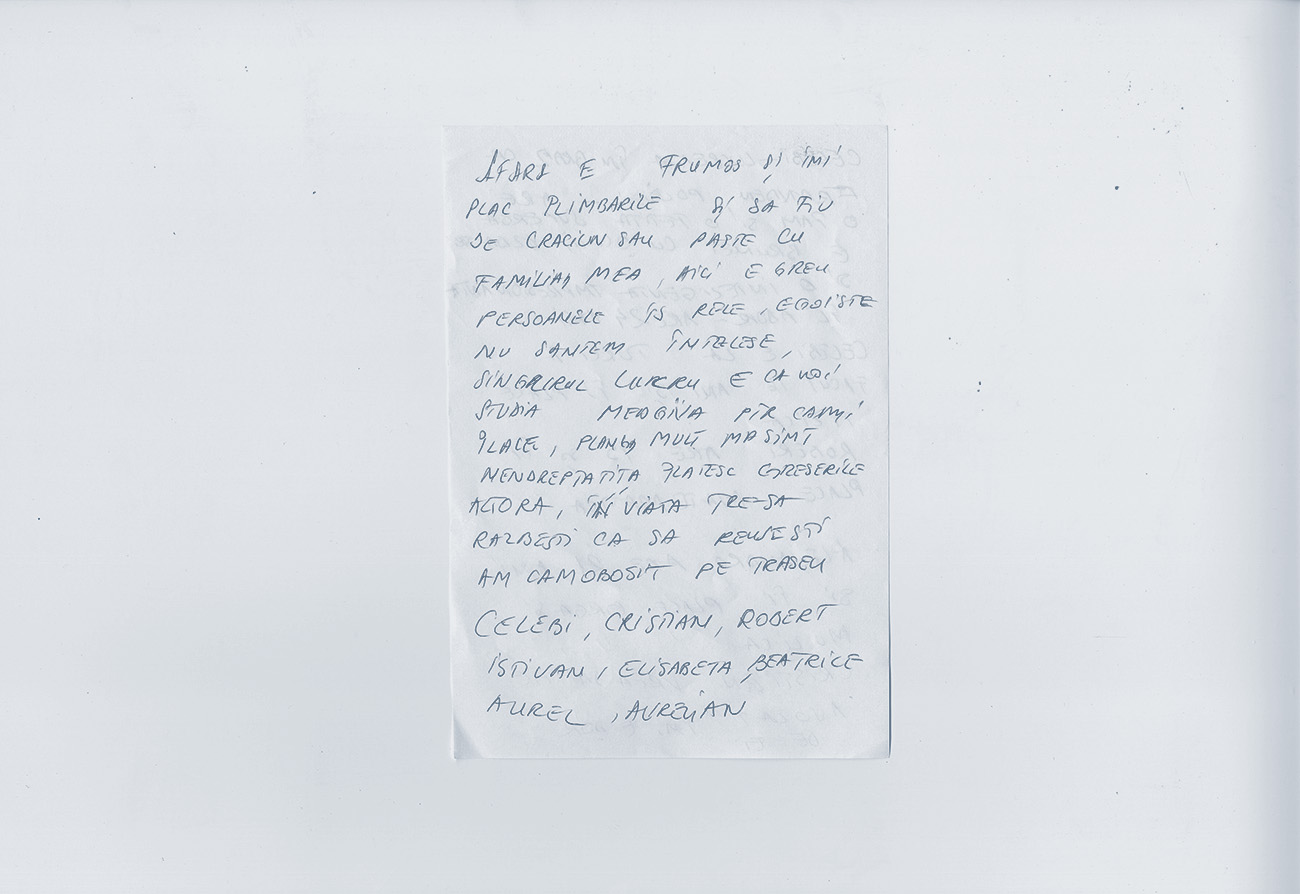 AFARA E FRUMOS ȘI ÎMI
PLAC PLIMBARILE ȘI SA FIU
DE CRACIUN SAU PASTE CU
FAMILIA MEA, AICI E GREU
PERSOANELE ÎS RELE, EGOISTE
NU SANTEM ÎNTELESE,
SINGRIRUL LUKRU E CA VOI
STUDIA PTR CAMI
PLACE, PLANG MULT MA SIMT
NENDREPTATITA PLATESC GRESERILE
ALTORA, ÎN VIATA TRE-SA
RAZBESTI CA SA REUSESTI
AM CAMOBOSIT PE TRASEU
CELEBI, CRISTIAN, ROBERT
ISTIVAN, ELISABETA, BEATRICE
AUREL, AURELIAN